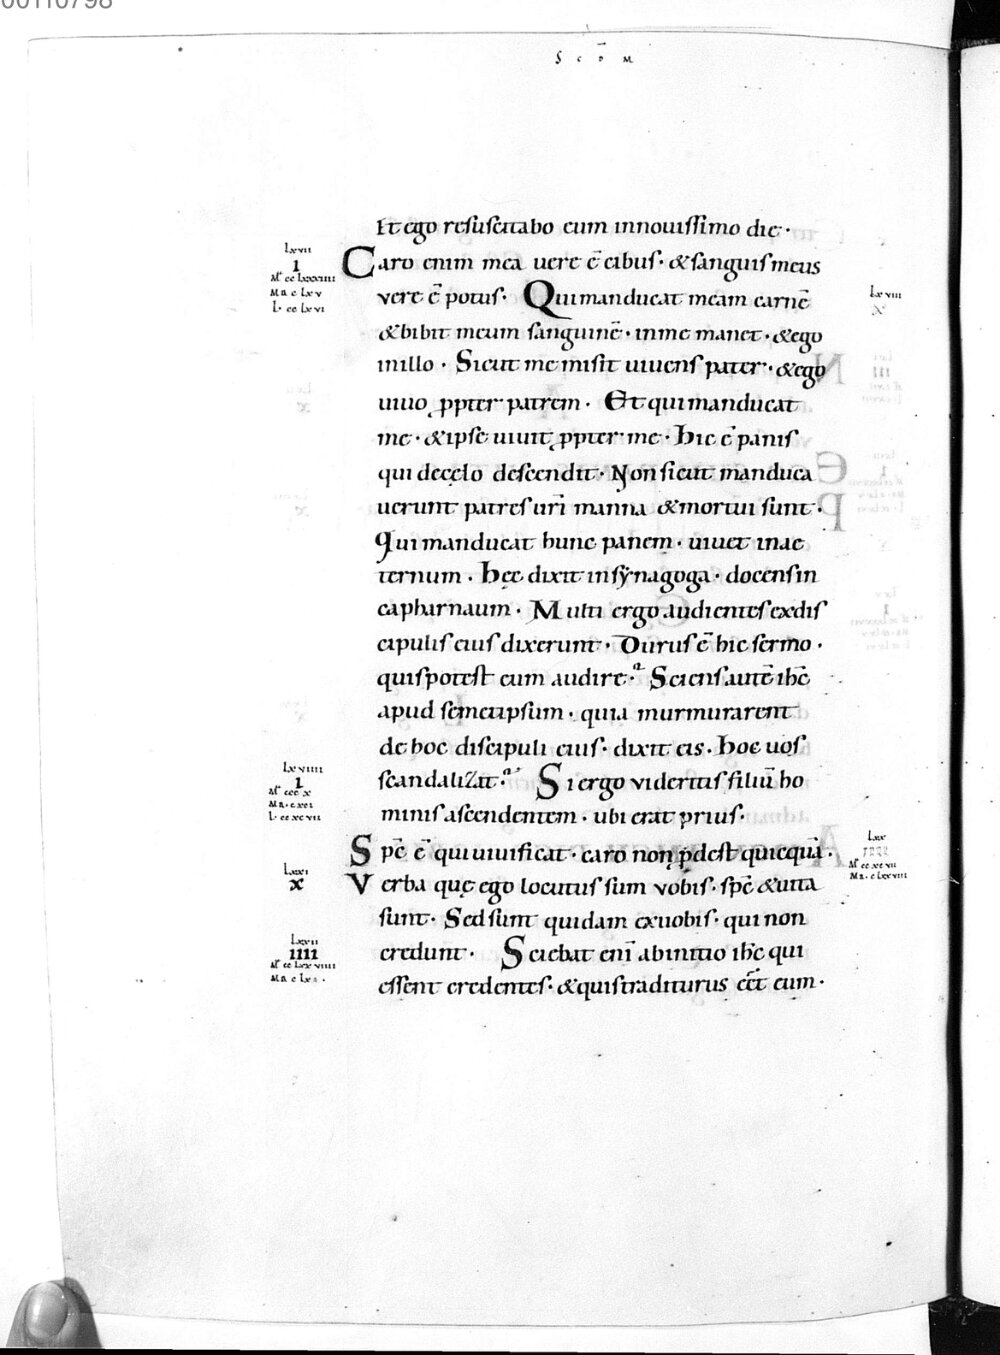 00110798
S c D̄ M
Et ego resuscitabo eum innouissimo die·
Caro enim mea uere ē cibus· &sanguis meus
vere ē potus· Qui manducat meam carnē
&bibit meum sanguinē· inme manet· &ego
inillo· Sicut me misit uiuens pater· &ego
uiuo ꝓpter patrem· Et qui manducat
me· &ipse uiuit ꝓpter me· hic ē panis
qui decęlo descendit· Non sicut manduca
uerunt patres ur̄i manna &mortui sunt·
Qui manducat hunc panem· uiuet inae
ternum· hęc dixit insẏnagoga· docens in
capharnaum· Multi ergo audientes exdis
cipulis eius dixerunt· Durus ē hic sermo·
quis potest eum audire· Sciens autē ihc̄
apud semetipsum· quia murmurarent
de hoc discipuli eius· dixit eis· hoc uos
scandalizat· Si ergo videritis filiū ho
minis ascendentem· ubi erat prius·
Spc̄ ē qui uiuificat· caro non ꝓdest quicquā·
Verba quę ego locutus sum vobis· spc̄ &uita
sunt· Sed sunt quidam exuobis· qui non
credunt· Sciebat enī abinitio ihc̄ qui
essent credentes· &quis traditurus eēt eum·
Lxvii
I
Mt cc Lxxxiiii
Ma c Lxv
L· cc Lxvi
Lxviii
X
Lxviiii
I
Mt ccc x
L· cc xc vii
Lxx
Mt cc xc vii
Ma· c Lxxviii
Lxxi
X
Lxxii
IIII
Mt cc Lxxviiii